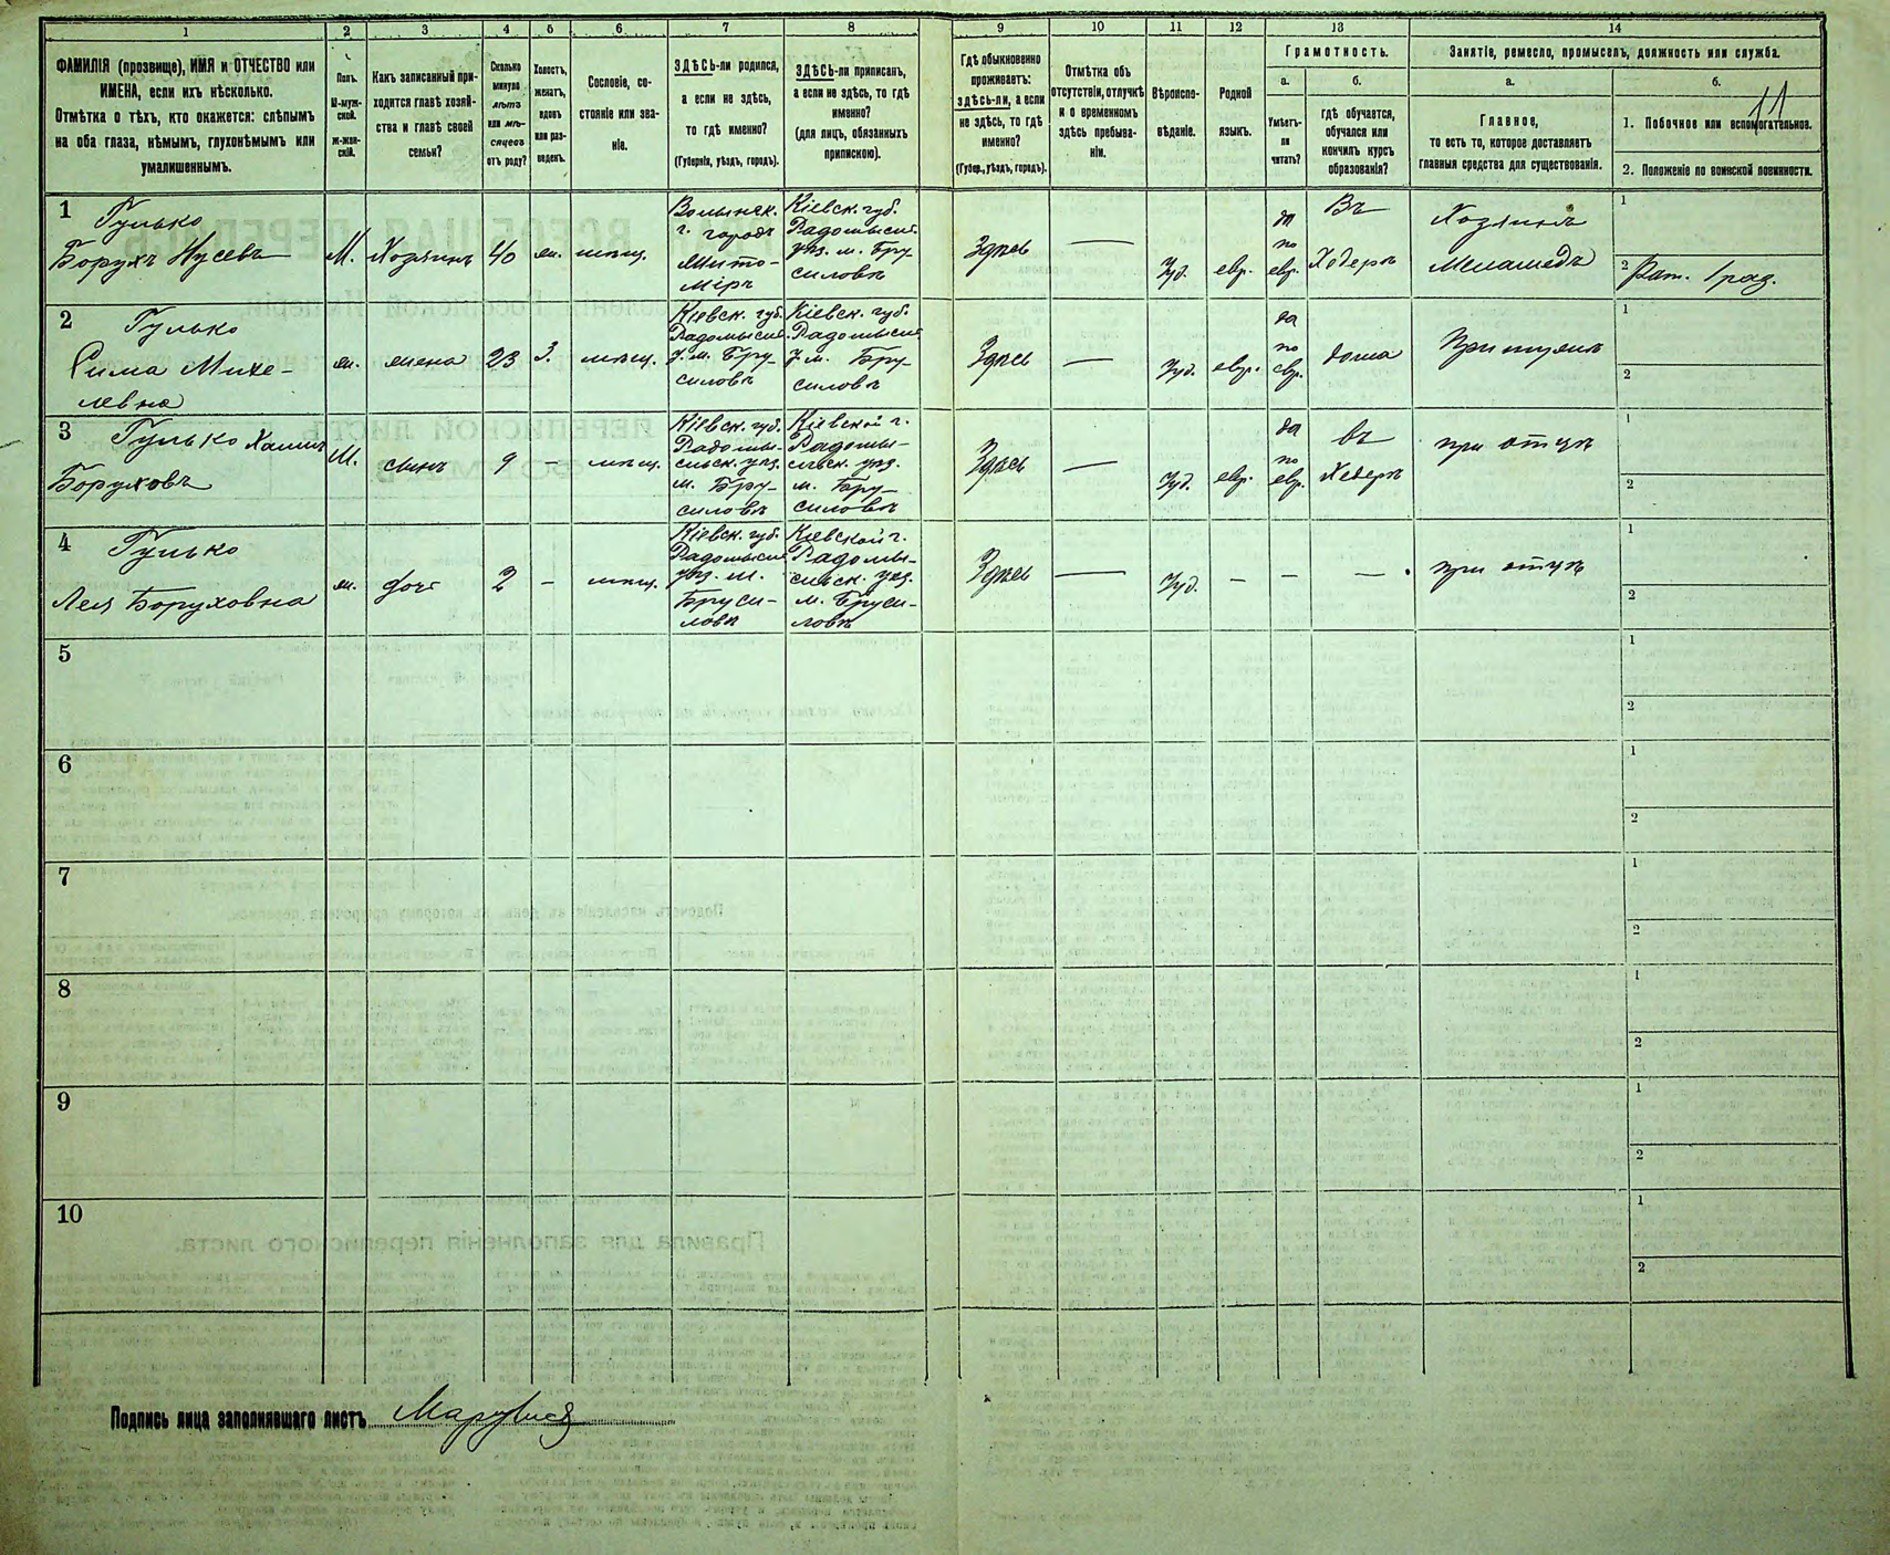 1
2
3
4
5
6
7
8
9
10
11
12
13
14
ФАМИЛІЯ (прозвище), ИМЯ и ОТЧЕСТВО или
ИМЕНА, если ихъ нѣсколько.
Отмѣтка о тѣхъ, кто окажется: слѣпымъ
на оба глаза, нѣмымъ, глухонѣмымъ или
умалишеннымъ.
Полъ.
М-муж-
ской.
ж-жен-
скій.
Какъ записанный при-
ходится главѣ хозяй-
ства и главѣ своей
семьи?
Сколько
минуло
лѣтъ
или мѣ-
сяцевъ
отъ роду?
Холостъ,
женатъ,
вдовъ
или раз-
веденъ.
Сословіе, со-
стояніе или зва-
ніе.
ЗДѢСЬ-ли родился,
а если не здѣсь,
то гдѣ именно?
(Губернія, уѣздъ, городъ).
ЗДѢСЬ-ли приписанъ,
а если не здѣсь, то гдѣ
именно?
(для лицъ, обязанныхъ
припискою).
Гдѣ обыкновенно
проживаетъ:
здѣсь-ли, а если
не здѣсь, то гдѣ
именно?
(Губер., уѣздъ, городъ).
Отмѣтка объ
отсутствіи, отлучкѣ
и о временномъ
здѣсь пребыва-
ніи.
Вѣроиспо-
вѣданіе.
Родной
языкъ.
Грамотность.
а.
Умѣетъ-
ли
читать?
б.
гдѣ обучается,
обучался или
кончилъ курсъ
образованія?
Занятіе, ремесло, промыселъ, должность или служба.
а.
Главное,
то есть то, которое доставляетъ
главныя средства для существованія.
б.
11
1. Побочное или вспомогательное.
2. Положеніе по воинской повинности.
1
Гулько
Борухъ Нусевъ
М.
Хозяинъ
40
жн.
мѣщ.
Волынск.
г. городъ
Жито-
міръ
Кіевск. губ.
Радомысл.
уѣз. м. Бру-
силовъ
Здѣсь
—
Іуд.
евр.
да
по
евр.
Въ
Хедерѣ
Хозяинъ
Меламедъ
1
2 Рат. 1 раз.
2
Гулько
Сима Михе-
левна
ж.
жена
23
З.
мѣщ.
Кіевск. губ.
Радомысл.
у. м. Бру-
силовъ
Кіевск. губ.
Радомысл.
у. м. Бру-
силовъ
Здѣсь
—
Іуд.
евр.
да
по
евр.
дома
При мужѣ
1
2
3
Гулько Хаимъ
Боруховъ
М.
сынъ
9
-
мѣщ.
Кіевск. губ.
Радомы-
сльск. уѣз.
м. Бру-
силовъ
Кіевской г.
Радомы-
сльск. уѣз.
м. Бру-
силовъ
Здѣсь
—
Іуд.
евр.
да
по
евр.
въ
Хедерѣ
при отцѣ
1
2
4
Гулько
Лея Боруховна
ж.
дочь
2
-
мѣщ.
Кіевск. губ.
Радомысл.
уѣз. м.
Бруси-
ловъ
Кіевской г.
Радомы-
сльск. уѣз.
м. Бруси-
ловъ
Здѣсь
—
Іуд.
-
-
-
при отцѣ
1
2
5
1
2
6
1
2
7
1
2
8
1
2
9
1
2
10
1
2
Подпись лица заполнявшаго листъ